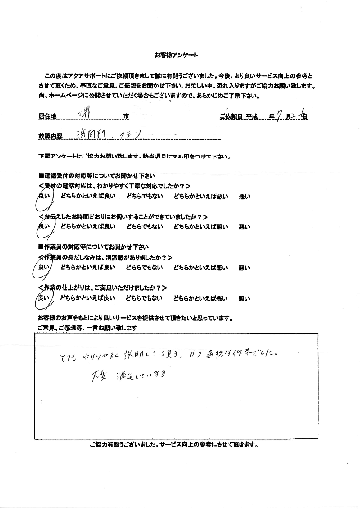 お客様アンケート
この度はアクアサポートにご依頼頂きまして誠に有難うございました。今後、より良いサービス向上の参考と
させて頂くため、率直なご意見、ご感想をお聞かせ下さい。お忙しい中、恐れ入りますがご協力お願い致します。
尚、ホームページに公開させていただく場合もございますので、あらかじめご了承下さい。
居住地 市 ご依頼日 平成 年 月
依頼内容
下記アンケートに、ご協力お願い致します。該当項目に○印をつけて下さい。
■電話受付の対応等についてお聞かせ下さい
＜受付の電話対応は、わかりやすく丁寧な対応でしたか？＞
良い どちらかといえば良い どちらでもない どちらかといえば悪い 悪い
＜お伝えしたお時間どおりにお伺いすることができていましたか？＞
良い どちらかといえば良い どちらでもない どちらかといえば悪い 悪い
■作業員の対応等についてお聞かせ下さい
＜作業員の身だしなみは、清潔感がありましたか？＞
良い どちらかといえば良い どちらでもない どちらかといえば悪い 悪い
＜作業の仕上がりは、ご満足いただけましたか？＞
良い どちらかといえば良い どちらでもない どちらかといえば悪い 悪い
お客様のお声をもとにより良いサービスを提供させて頂きたいと思っています。
ご意見、ご感想等、一言お願い致します
大変 満足しています
ご協力有難うございました。サービス向上の参考にさせて頂きます。